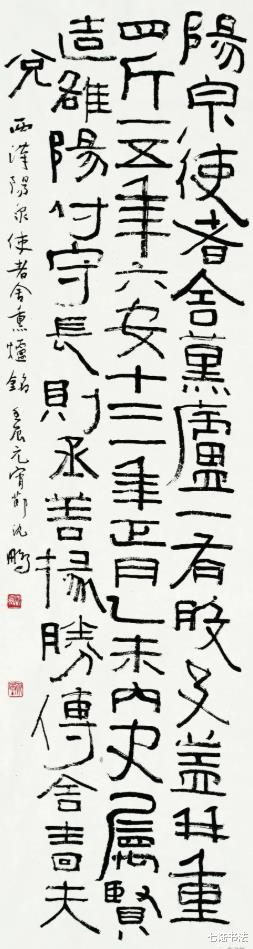 陽泉使者舍薰盧一有般及蓋并重
四斤一五年六安十三年正月乙未內史屬賢
造雒陽付守長則丞善掾勝傳舍嗇夫
兌
西漢陽泉使者舍熏爐銘 壬辰元宵節沈鵬
书法